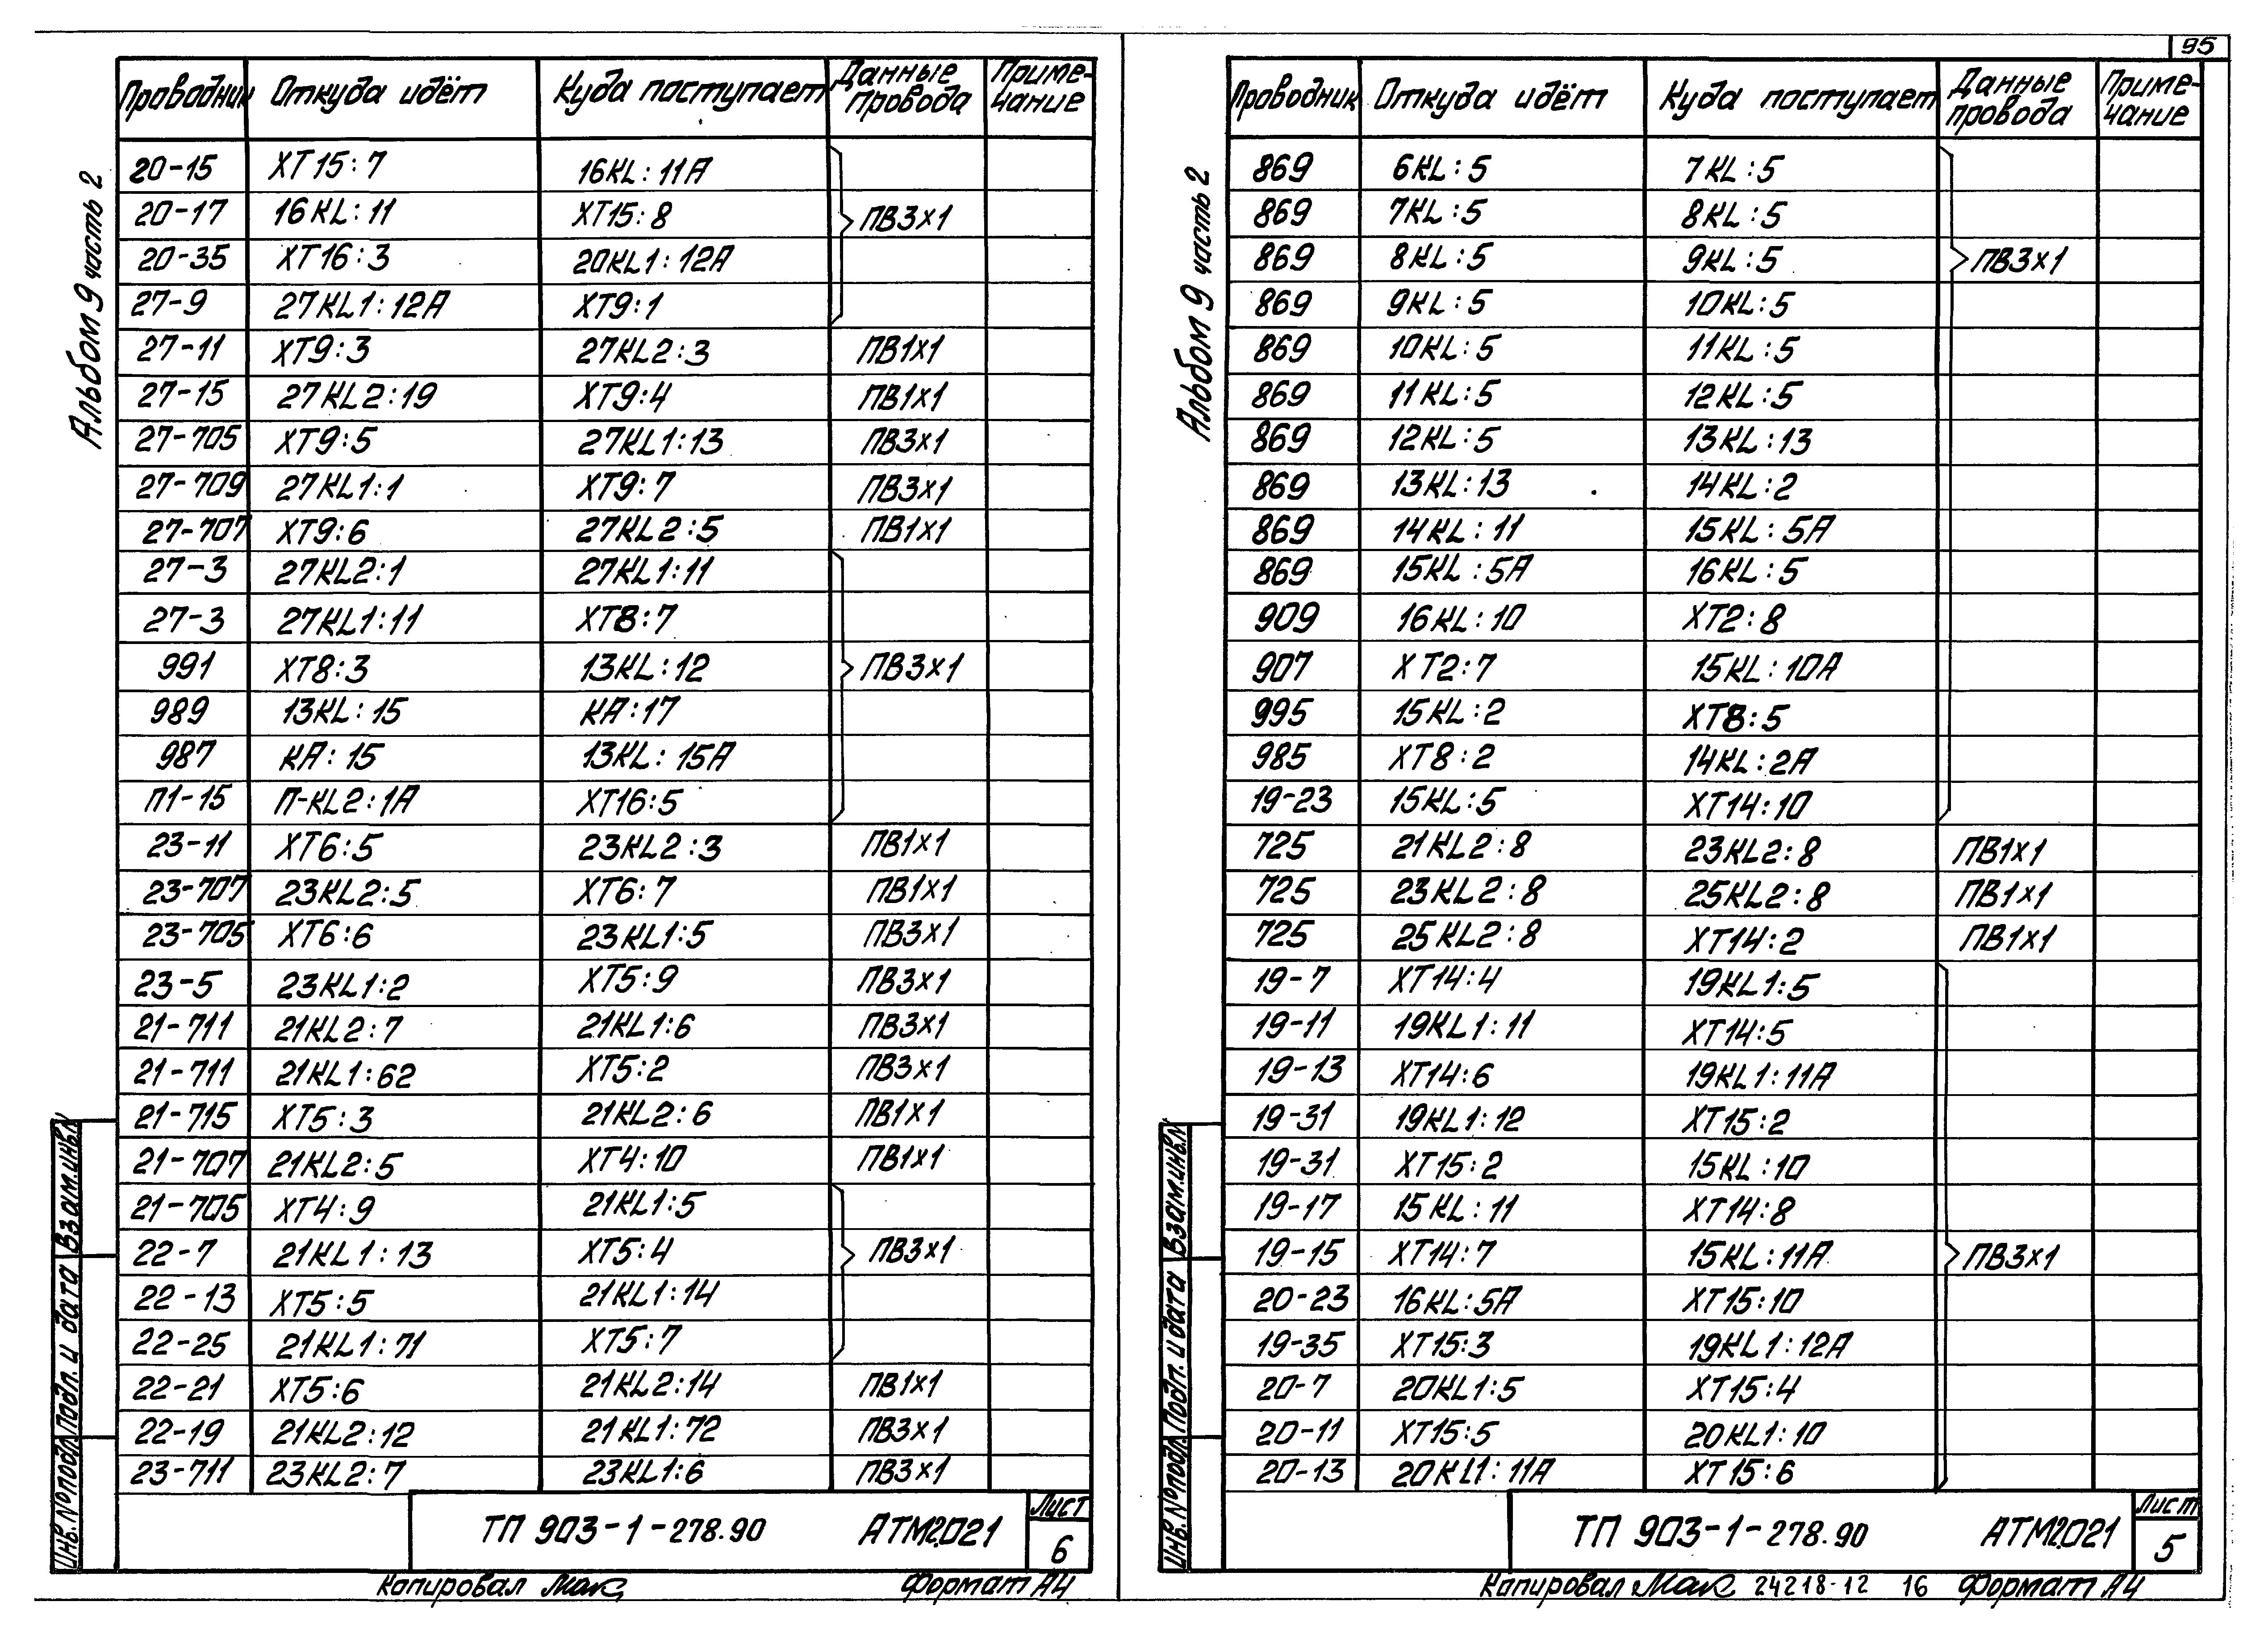 95
Альбом 9 часть 2
Проводник Откуда идёт Куда поступает Данные провода Приме-чание
20-15 XT15:7 16KL:11A
20-17 16KL:11 XT15:8 ПВ3х1
20-35 XT16:3 20KL1:12A
27-9 27KL1:12A XT9:1
27-11 XT9:3 27KL2:3 ПВ1х1
27-15 27KL2:19 XT9:4 ПВ1х1
27-705 XT9:5 27KL1:13 ПВ3х1
27-709 27KL1:1 XT9:7 ПВ3х1
27-707 XT9:6 27KL2:5 ПВ1х1
27-3 27KL2:1 27KL1:11
27-3 27KL1:11 XT8:7
991 XT8:3 13KL:12 ПВ3х1
989 13KL:15 KA:17
987 KA:15 13KL:15A
П1-15 П-KL2:1A XT16:5
23-11 XT6:5 23KL2:3 ПВ1х1
23-707 23KL2:5 XT6:7 ПВ1х1
23-705 XT6:6 23KL1:5 ПВ3х1
23-5 23KL1:2 XT5:9 ПВ3х1
21-711 21KL2:7 21KL1:6 ПВ3х1
21-711 21KL1:62 XT5:2 ПВ3х1
21-715 XT5:3 21KL2:6 ПВ1х1
21-707 21KL2:5 XT4:10 ПВ1х1
21-705 XT4:9 21KL1:5
22-7 21KL1:13 XT5:4 ПВ3х1
22-13 XT5:5 21KL1:14
22-25 21KL1:71 XT5:7
22-21 XT5:6 21KL2:14 ПВ1х1
22-19 21KL2:12 21KL1:72 ПВ3х1
23-711 23KL2:7 23KL1:6 ПВ3х1
Инв.№подл. Подп. и дата Взам.инв.№
ТП 903-1-278.90 АТМ2.021 Лист 6
Копировал Формат А4
Альбом 9 часть 2
Проводник Откуда идёт Куда поступает Данные провода Приме-чание
869 6KL:5 7KL:5
869 7KL:5 8KL:5
869 8KL:5 9KL:5 ПВ3х1
869 9KL:5 10KL:5
869 10KL:5 11KL:5
869 11KL:5 12KL:5
869 12KL:5 13KL:13
869 13KL:13 14KL:2
869 14KL:11 15KL:5A
869 15KL:5A 16KL:5
909 16KL:10 XT2:8
907 XT2:7 15KL:10A
995 15KL:2 XT8:5
985 XT8:2 14KL:2A
19-23 15KL:5 XT14:10
725 21KL2:8 23KL2:8 ПВ1х1
725 23KL2:8 25KL2:8 ПВ1х1
725 25KL2:8 XT14:2 ПВ1х1
19-7 XT14:4 19KL1:5
19-11 19KL1:11 XT14:5
19-13 XT14:6 19KL1:11A
19-31 19KL1:12 XT15:2
19-31 XT15:2 15KL:10
19-17 15KL:11 XT14:8
19-15 XT14:7 15KL:11A ПВ3х1
20-23 16KL:5A XT15:10
19-35 XT15:3 19KL1:12A
20-7 20KL1:5 XT15:4
20-11 XT15:5 20KL1:10
20-13 20KL1:11A XT15:6
Инв.№подл. Подп. и дата Взам.инв.№
ТП 903-1-278.90 АТМ2.021 Лист 5
Копировал 24218-12 16 Формат А4